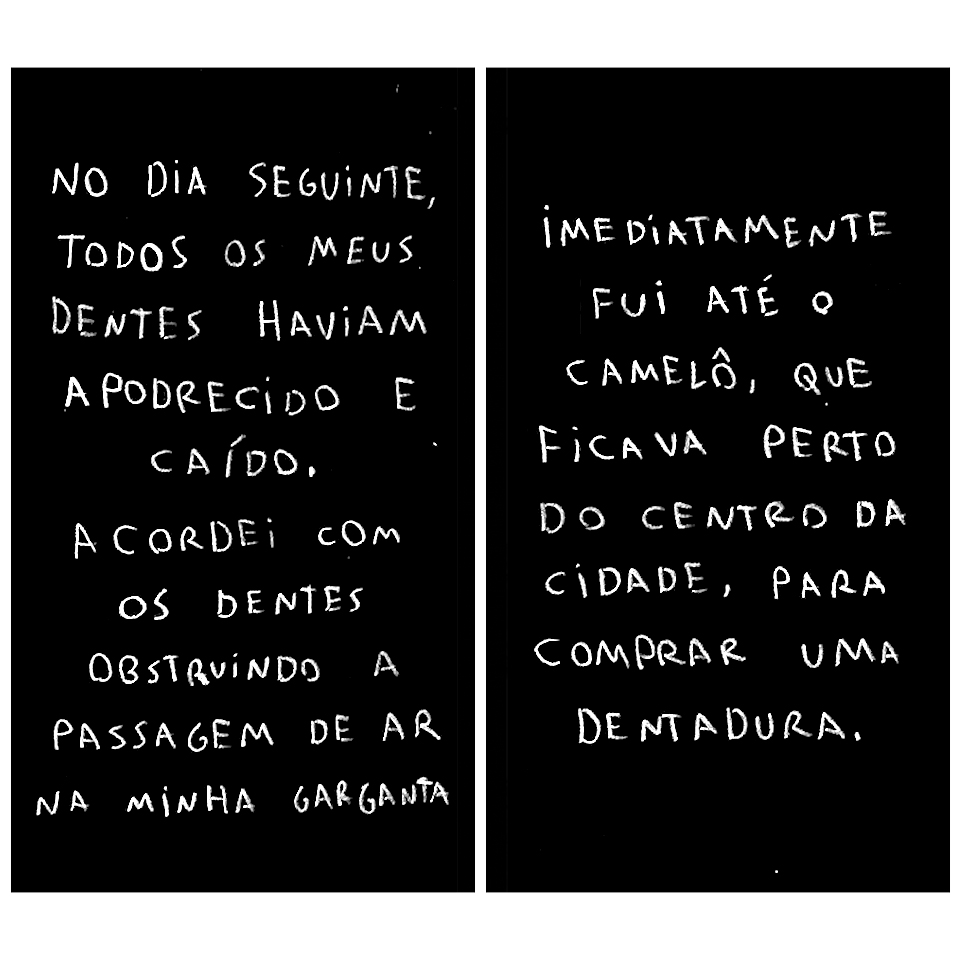 NO DiA SEGUiNTE,
TODOS OS MEUS
DENTES HAViAM
APODRECiDO E
CAÍDO.
ACORDEi COM
OS DENTES
OBSTRUiNDO A
PASSAGEM DE AR
NA MiNHA GARGANTA
iMEDiATAMENTE
FUi ATÉ O
CAMELÔ, QUE
FiCAVA PERTO
DO CENTRO DA
CiDADE, PARA
COMPRAR UMA
DENTADURA.